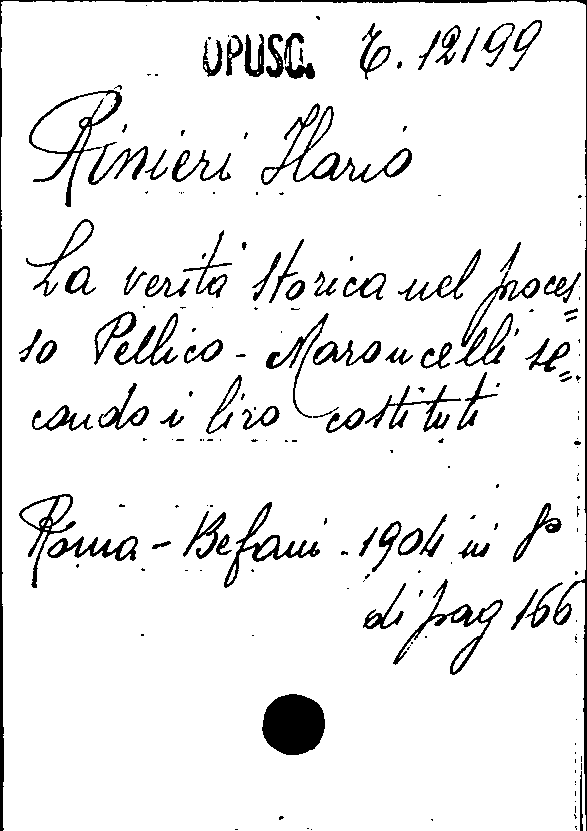 OPUSC. E. 12199
Rinieri Ilario
La verità storica nel proces=
so Pellico - Maroncelli se=
condo i liro costituti
Roma - Befani - 1904 in 8°
di pag 166